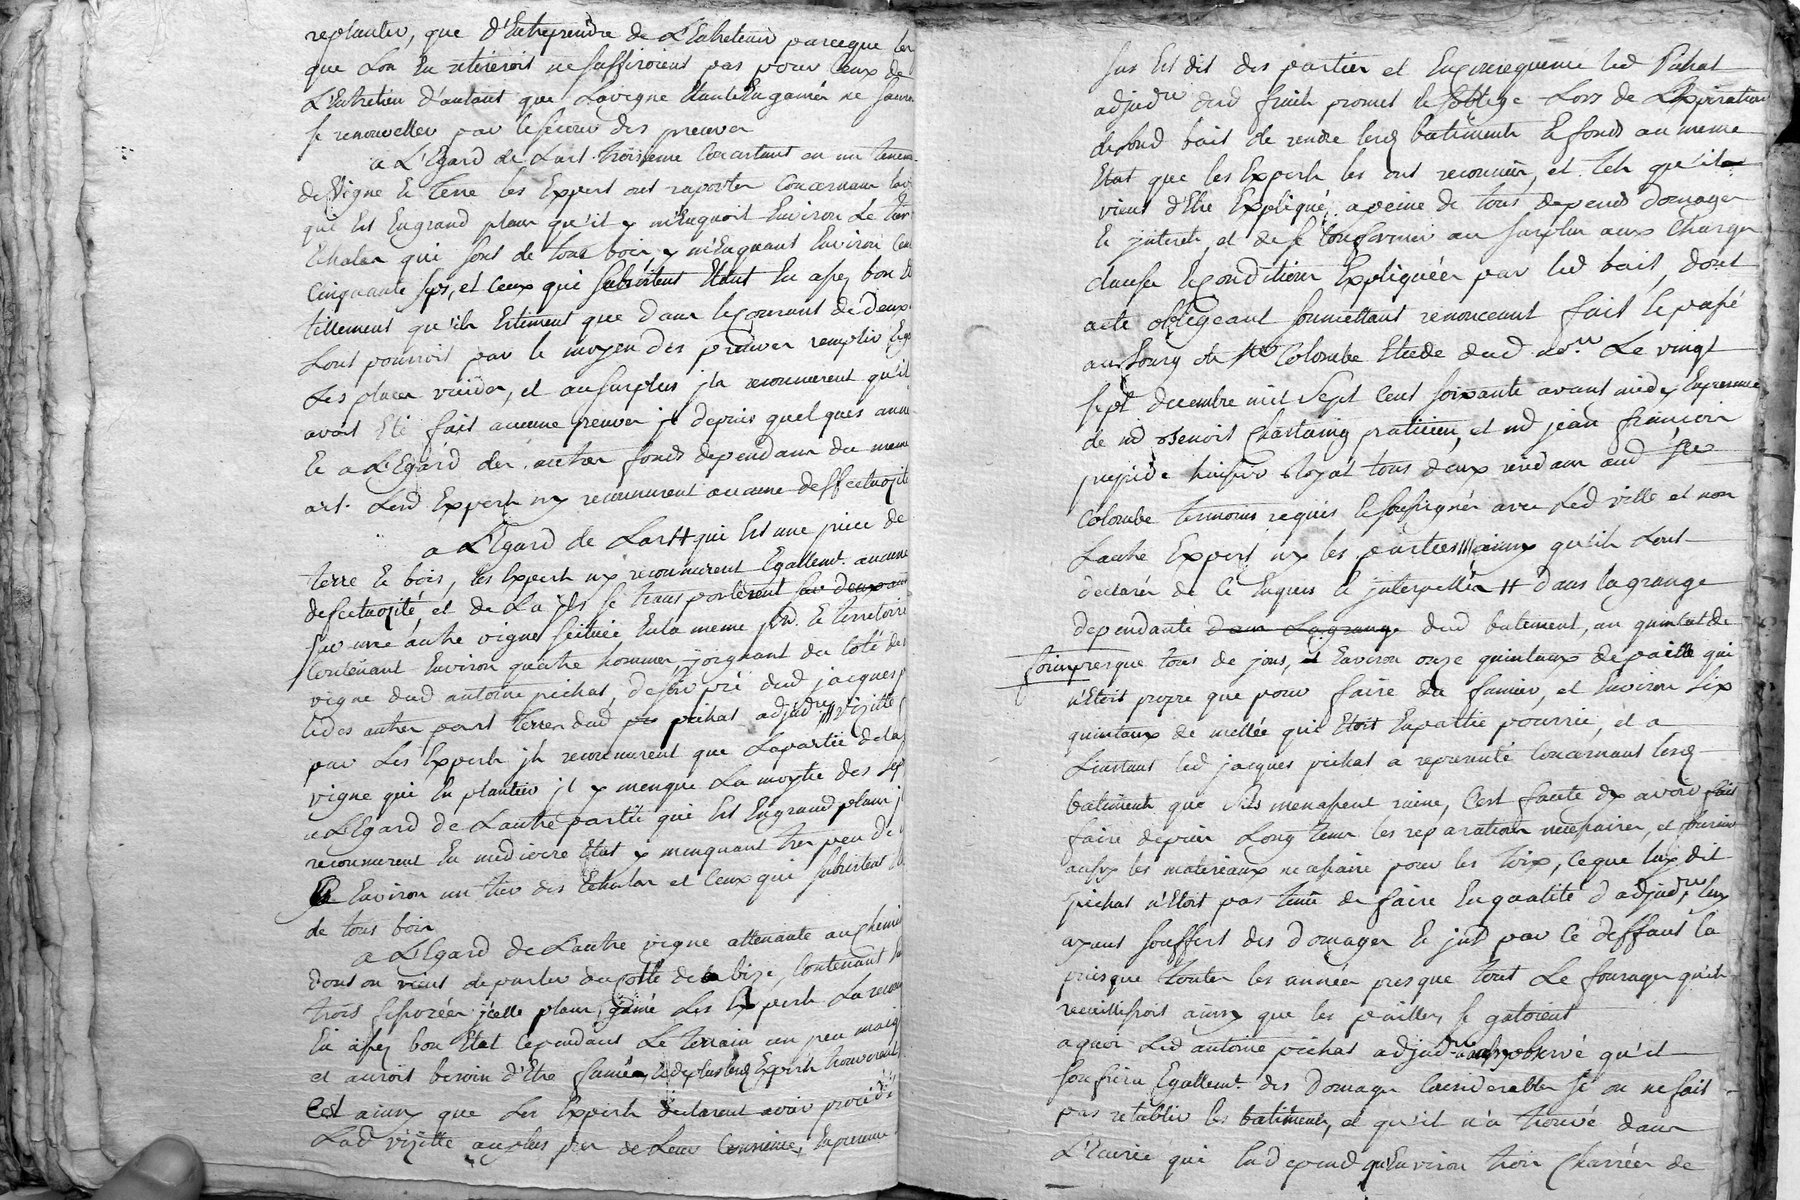 replanter, que d'Entreprendre de L'Entretenir parceque les
que Lon En retireroit ne suffiroient pas pour ceux de
L'Entretien d'autant que Lavigne Etant Engamée ne sauroit
se renouveller par le secour des preuves
a L'Egard de Lart. troisieme Consistant en un tenement
de Vigne et terre les Expert ont raporter Concernant la
qui Est En grand plan qu'il y menquoit Environ Le tier
Echalas qui sont de tout bois, y menquant Environ Cent
Cinquante seps, et Ceux qui subsistent Etant En assez bon
tellement qu'ils Estiment que dans le courant de deux
Lont pourroit par le moyen des preuves remplir
Les places vuides, et au surplus jls reconnurent qu'il
avoit Eté fait aucune preuve depuis quelques anné
Et a L'Egard des autres fonds dependant du meme
art. Lesd Experts n'y reconnurent aucune deffectuosité
a L'Egard de Lart qui Est une piece de
terre et bois, les Experts n'y reconnurent Egallemt. aucune
defectuosité, et de La jls se transporterent sur deux
sur une autre vigne scituée En la meme et territoire
Contenant Environ quatre hommes, joignant du coté des
vigne dud antoine pichat, dessus pré dud jacques
et des autres part terres dud pichat adjudre vizitté
par Les Experts jls reconnurent que La partie de la
vigne qui En plantier jl y menque La moytié des sep
a L'Egard de L'autre partie qui Est En grand plan
reconnurent En mediocre Etat y menquant tres peu de
Environ un tier des Echalas et Ceux qui subsistent
de tous bois
a L'Egard de L'autre vigne attenante au chemin
dont on vient de parler du coté de la bize, Contenant
trois jcelle plan gamé Les Experts La reconn
En assez bon Etat Cependant Le terrain un peu maigre
et auroit besoin d'Etre fumée, et de plus lesd Experts trouverent
C'est ainsy que Les Experts declarent avoir procédé
Lad vizitte au plus pres de Leur Conscience, En presence
sus Est dit des parties et En consequence led Pichat
adjudre dud fruits promet et s'oblige Lors de L'Expiration
de sond bail de rendre lesd batiments et fonds au meme
Etat que les Experts les ont reconnus, et tels qu'il
vient d'Etre Expliqué, a peine de tous depends domages
et jnterets, et de se conformer au surplus aux Charges
clauses et conditions Expliquées par led bail, dont
acte obligeant soumettant renonceant fait et passé
au bourg de Ste Colombe Etude dud nore. Le vingt
sept decembre mil sept Cent soixante avant midy En presence
de md Benoit Chastaing praticien, et md jean françois
huissier Royal tous deux residant aud Ste
Colombe temoins requis et soussignés avec Led ville et non
L'autre Expert ny les parties ainsy qu'ils L'ont
declarés de Ce Enquis et jnterpellés dans la grange
dependante dans La grange dud batiment, un quintal de
foin presque tous de jons, et Environ onze quintaux de paille qui
n'Etoit propre que pour faire du fumier, et Environ six
quintaux de mellée qui Etoit En partie pourrie, et a
L'instant led jacques pichat a representé Concernant lesd
batiments que s'ils menassent ruine, C'est faute d'y avoir fait
faire depuis Long tems les reparations necessaires, et fourni
aussy les materiaux necessaire pour les toix, ceque luy dit
pichat n'Etoit pas tenu de faire En qualité d'adjudre, luy
ayant souffert des domages et jnt par Ce deffaut la
presque toutes les années presque tout Le fourages qu'il
recueillissoit ainsy que les pailles, se gatoient
a quoi Led antoine pichat adjudre a aussy observé qu'il
souffrira Egallemt. des domages Considerables si on ne fait
pas retablir les batiments, et qu'il n'a trouvé dans
L'Ecurie qui En depend qu'Environ trois Charrées de